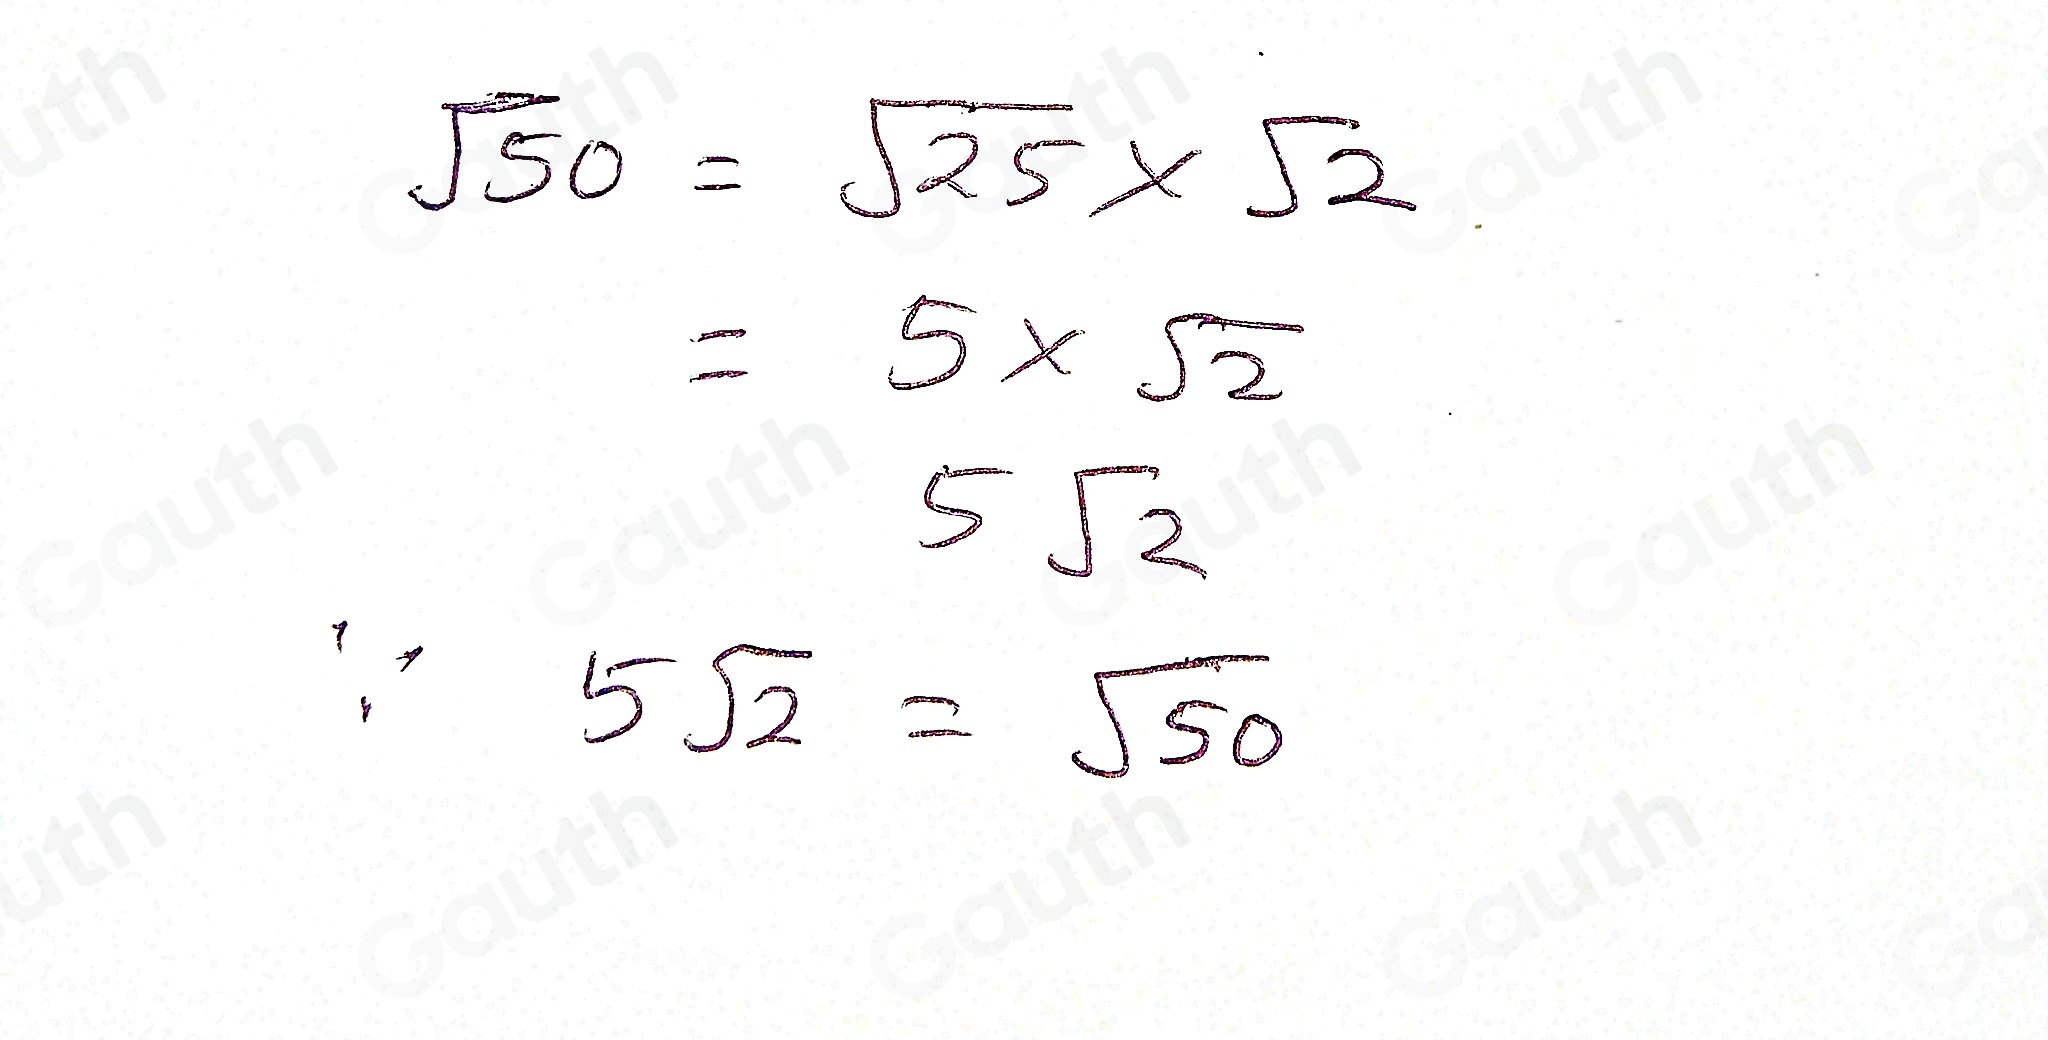 √50 = √25 × √2
= 5 × √2
5 √2
∵ 5√2 = √50
Gauth